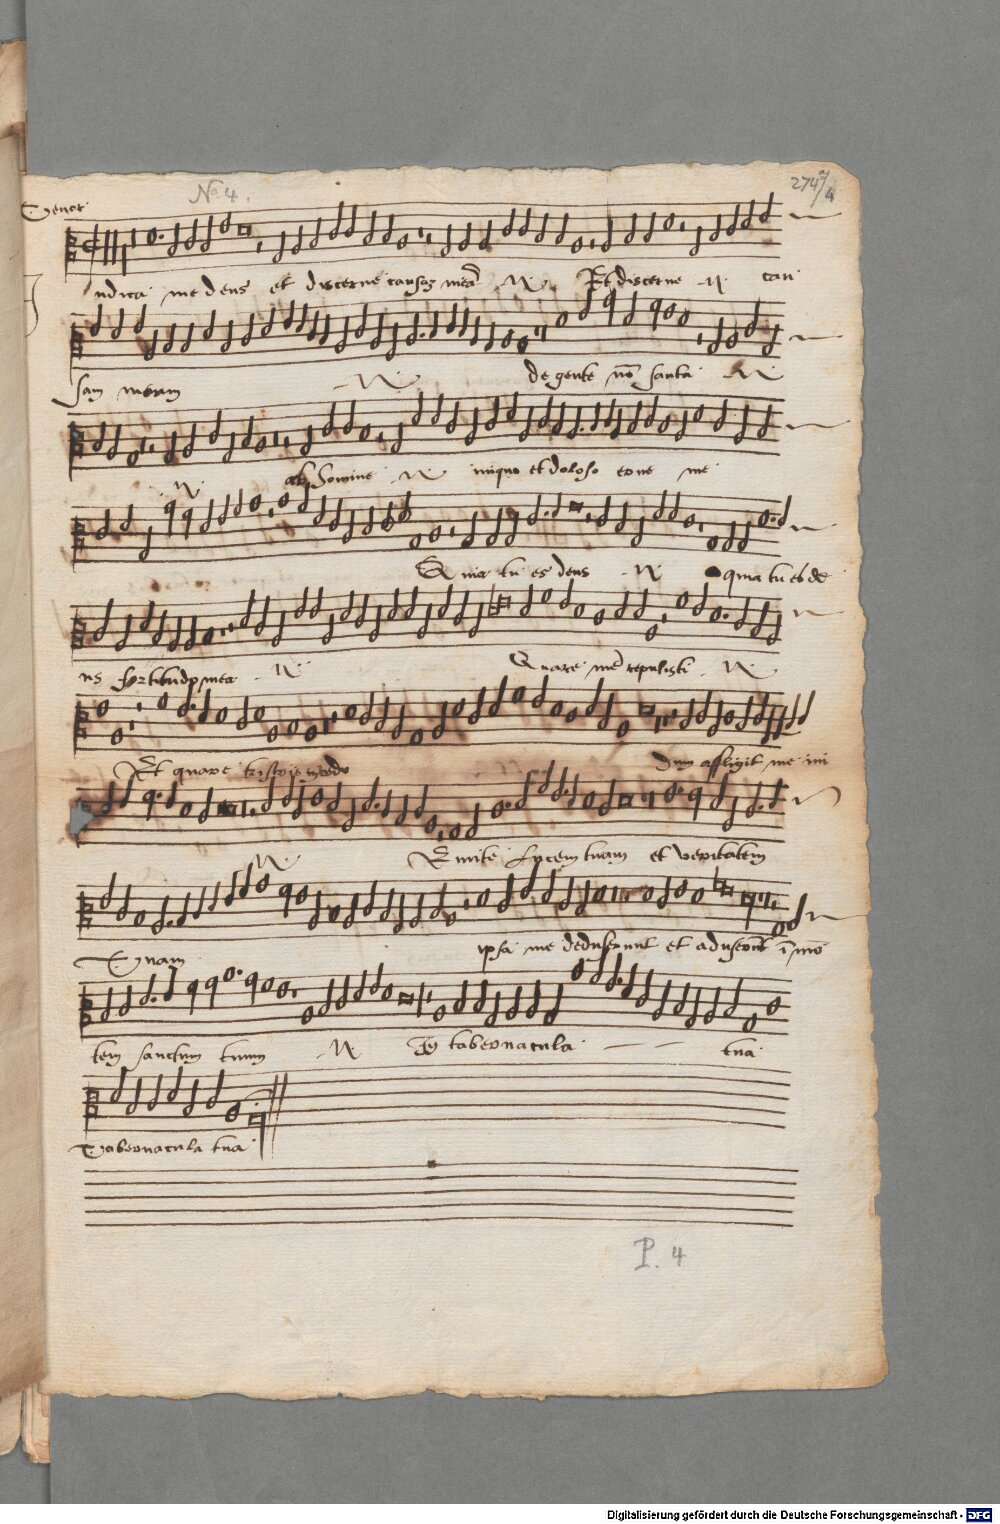 No 4.
274/4
Tenor
udica me deus et discerne causaz meā Et discerne cau
sam meam de gente nō sancta
ab homine iniquo et doloso erue me
Quia tu es deus quia tu es de
us fortitudo mea Quare me repulisti
Et quare tristis incedo Dum affligit me ini
Emitte Lucem tuam et veritatem
Tuam ipsa me deduxerunt et aduxerūt ī mō
tem sanctum tuum tabernacula tua
Tabernacula tua
P. 4
Digitalisierung gefördert durch die Deutsche Forschungsgemeinschaft - DFG